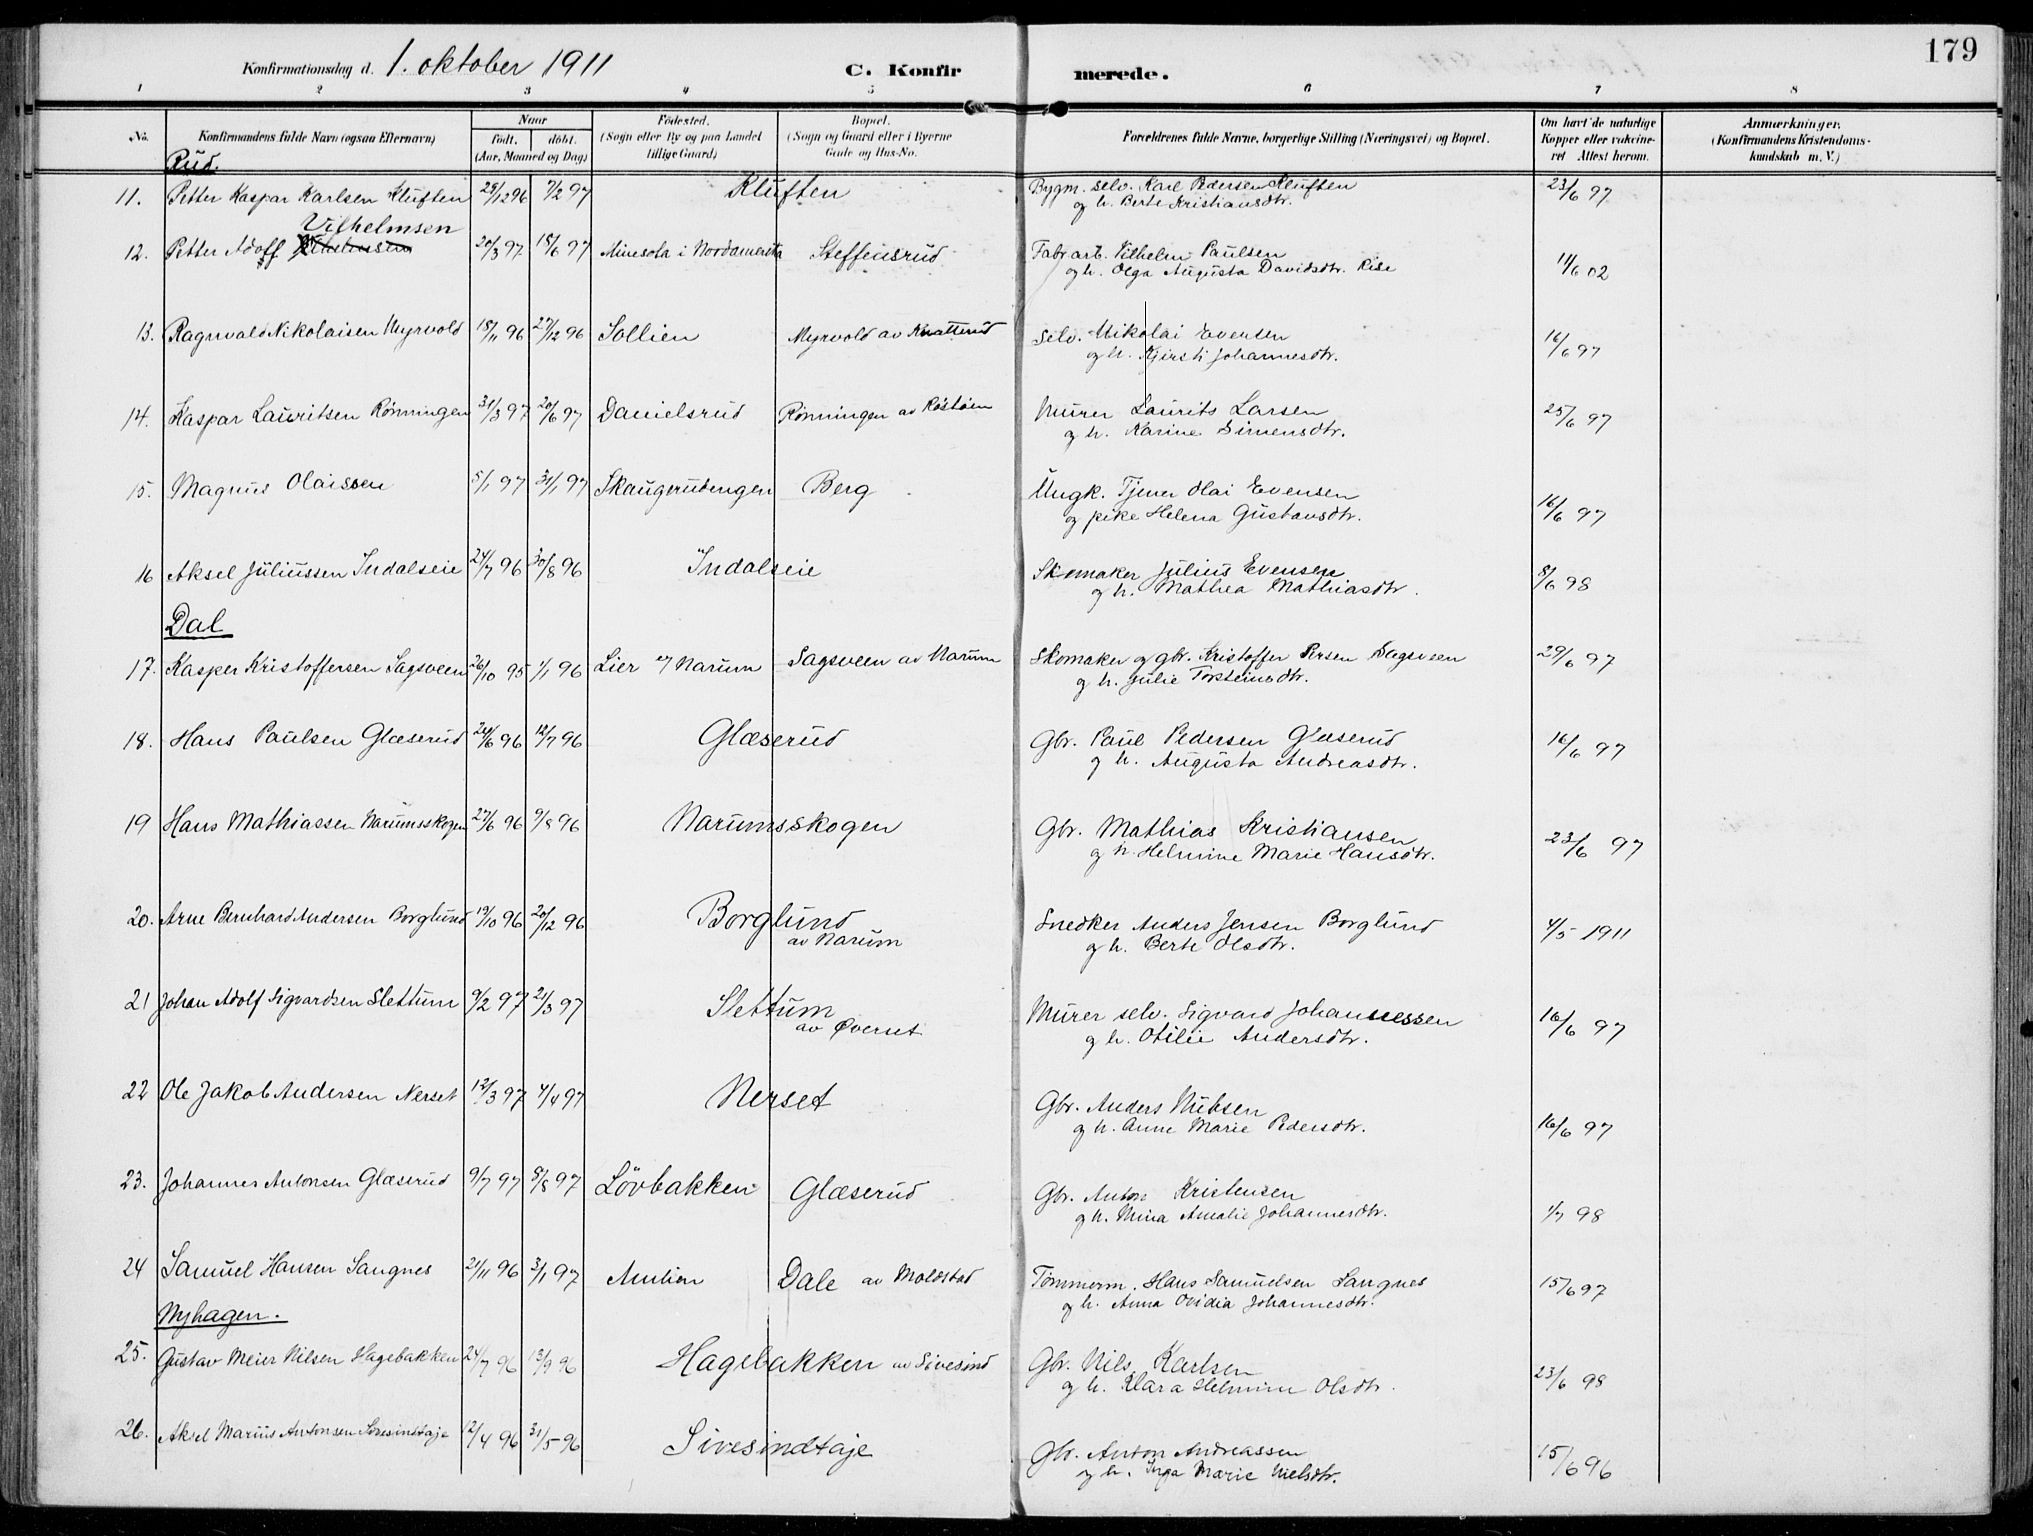 Konfirmationsdag d. 1. oktober 1911 C. Konfirmerede. 179
1 2 3 4 5 6 7 8
No. Konfirmandens fulde Navn (ogsaa Efternavn) Naar født. døbt. (Aar, Maaned og Dag) Fødested. (Sogn eller By og paa Landet tillige Gaard) Bopæl. (Sogn og Gaard eller i Byerne Gade og Hus-No. Forældrenes fulde Navne, borgerlige Stilling (Næringsvei) og Bopæl. Om havt de naturlige Kopper eller vaccineret Attest herom. Anmærkninger. (Konfirmandens Kristendomskundskab m. V.)
Rud
11. Petter Kaspar Karlsen Kluften 29/12 96 7/2 97 Kluften Bygm. selv. Karl Pedersen Kluften 23/6 97
og h. Berte Kristiansdtr.
Vilhelmsen
12. Petter Adolf 20/3 97 18/6 97 Minesota i Nordamerika Steffensrud Fabr arb. Vilhelm Paulsen 11/6 02
og h. Olga Augusta Davidsdtr. Rise
13. Ragnvald Nikolaisen Myrvold 18/11 96 27/12 96 Sollien Myrvold av Knatterud Selv. Nikolai Evensen 16/6 97
og h. Kjirsti Johannesdtr.
14. Kaspar Lauritsen Rønningen 31/3 97 20/6 97 Danielsrud Rønningen av Røstøen Murer Laurits Larsen 25/6 97
og h. Karine Simensdtr.
15. Magnus Olaissen 5/1 97 31/1 97 Skaugerudengen Berg Ungk. Tjener Olai Evensen 16/6 97
og pike Helena Gustavsdtr.
16 Aksel Juliussen Indalseie 24/7 96 30/8 96 Indalseie Skomaker Julius Evensen 8/6 98
og h. Mathea Mathiasdtr.
Dal
17. Kasper Kristoffersen Sagsveen 26/10 95 1/1 96 Lier av Narum Sagsveen av Narum Skomaker og gbr. Kristoffer Persen Sagsveen 29/6 97
og h. Julie Torsteinsdtr.
18. Hans Paulsen Glæserud 24/6 96 12/7 96 Glæserud Gbr. Paul Pedersen Glæserud 16/6 97
og h. Augusta Andreasdtr.
19 Hans Mathiassen Narumsskogen 27/6 96 9/8 96 Narumsskogen Gbr. Mathias Kristiansen 23/6 97
og h. Helmine Marie Hansdtr.
20. Arne Bernhard Andersen Borglund 19/10 96 20/12 96 Borglund Snedker Anders Jensen Borglund 4/5 1911
av Narum og h. Berte Olsdtr.
21 Johan Adolf Sigvardsen Slettum 9/2 97 21/3 97 Slettum Murer selv. Sigvard Johannessen 16/6 97
av Øvernet og h. Otilie Andersdtr.
22 Ole Jakob Andersen Nerset 12/3 97 4/4 97 Nerset Gbr. Anders Nilsen 16/6 97
og h. Anne Marie Pedersdtr.
23. Johannes Antonsen Glæserud 9/7 97 8/8 97 Løvbakken Glæserud Gbr. Anton Kristensen 1/7 98
og h. Mina Amalie Johannesdtr.
24 Samuel Hansen Sangnes 21/11 96 3/1 97 Amlien Dale av Moldstad Tømmerm. Hans Samuelsen Sangnes 15/6 97
og h. Anna Ovidia Johannesdtr.
Nyhagen.
25. Gustav Meier Nilsen Hagebakken 24/7 96 13/9 96 Hagebakken av Sivesind Gbr. Nils Karlsen 23/6 98
og h. Klara Helmine Olsdtr.
26. Aksel Marius Antonsen Sivesindtaje 12/4 96 31/5 96 Sivesindtaje Gbr. Anton Andreassen 15/6 96
og h. Inga Marie Nielsdtr.